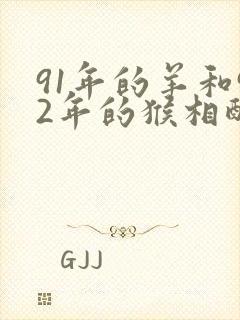 91年的羊和9
2年的猴相配
GJJ